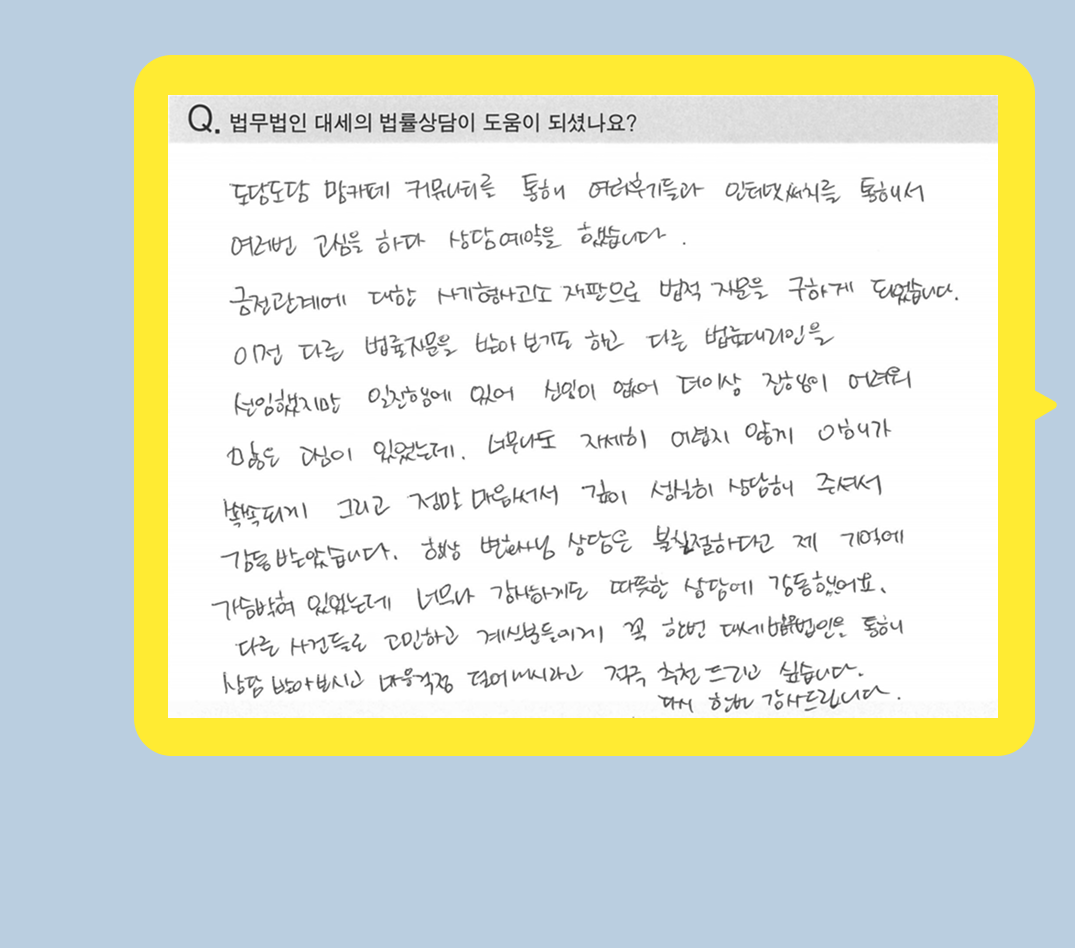 Q. 법무법인 대세의 법률상담이 도움이 되셨나요?
도담도담 맘카페 커뮤니티를 통해 여러후기들과 인터넷써치를 통해서
여러번 고심을 하다 상담예약을 했습니다.
금전관계에 대한 사기형사고소 재판으로 법적 자문을 구하게 되었습니다.
이전 다른 법률자문을 받아 보기도 하고 다른 법률대리인을
선임했지만 일진행에 있어 신임이 없어 더이상 진행이 어려워
많은 고심이 있었는데. 너무나도 자세히 어렵지 않게 이해가
쏙쏙되게 그리고 정말 마음써서 깊이 성실히 상담해 주셔서
감동받았습니다. 항상 변호사님 상담은 불친절하다고 제 기억에
가슴박혀 있었는데 너무나 감사하게도 따뜻한 상담에 감동했어요.
다른 사건들로 고민하고 계신분들에게 꼭 한번 대세법무법인을 통해
상담 받아보시고 마음걱정 덜어내시라고 적극 추천 드리고 싶습니다.
다시 한번 감사드립니다.